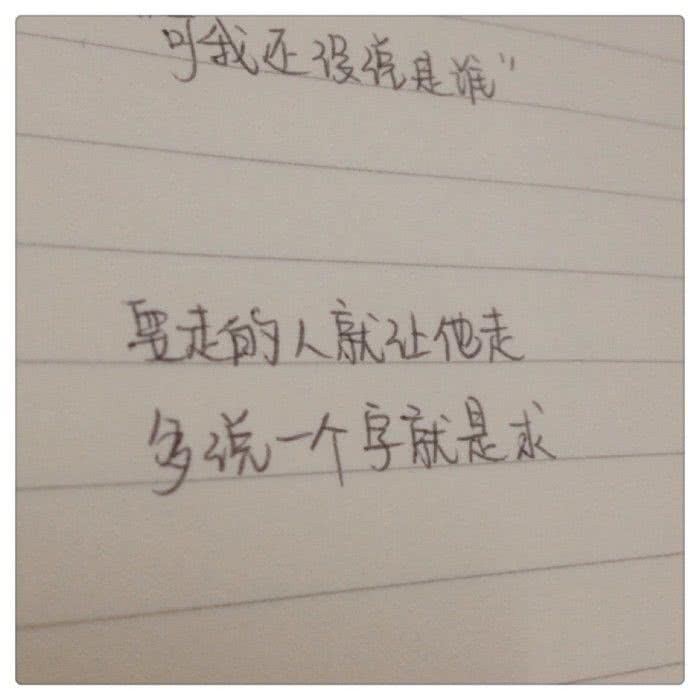 "可我还没说是谁"
要走的人就让他走
多说一个字就是求